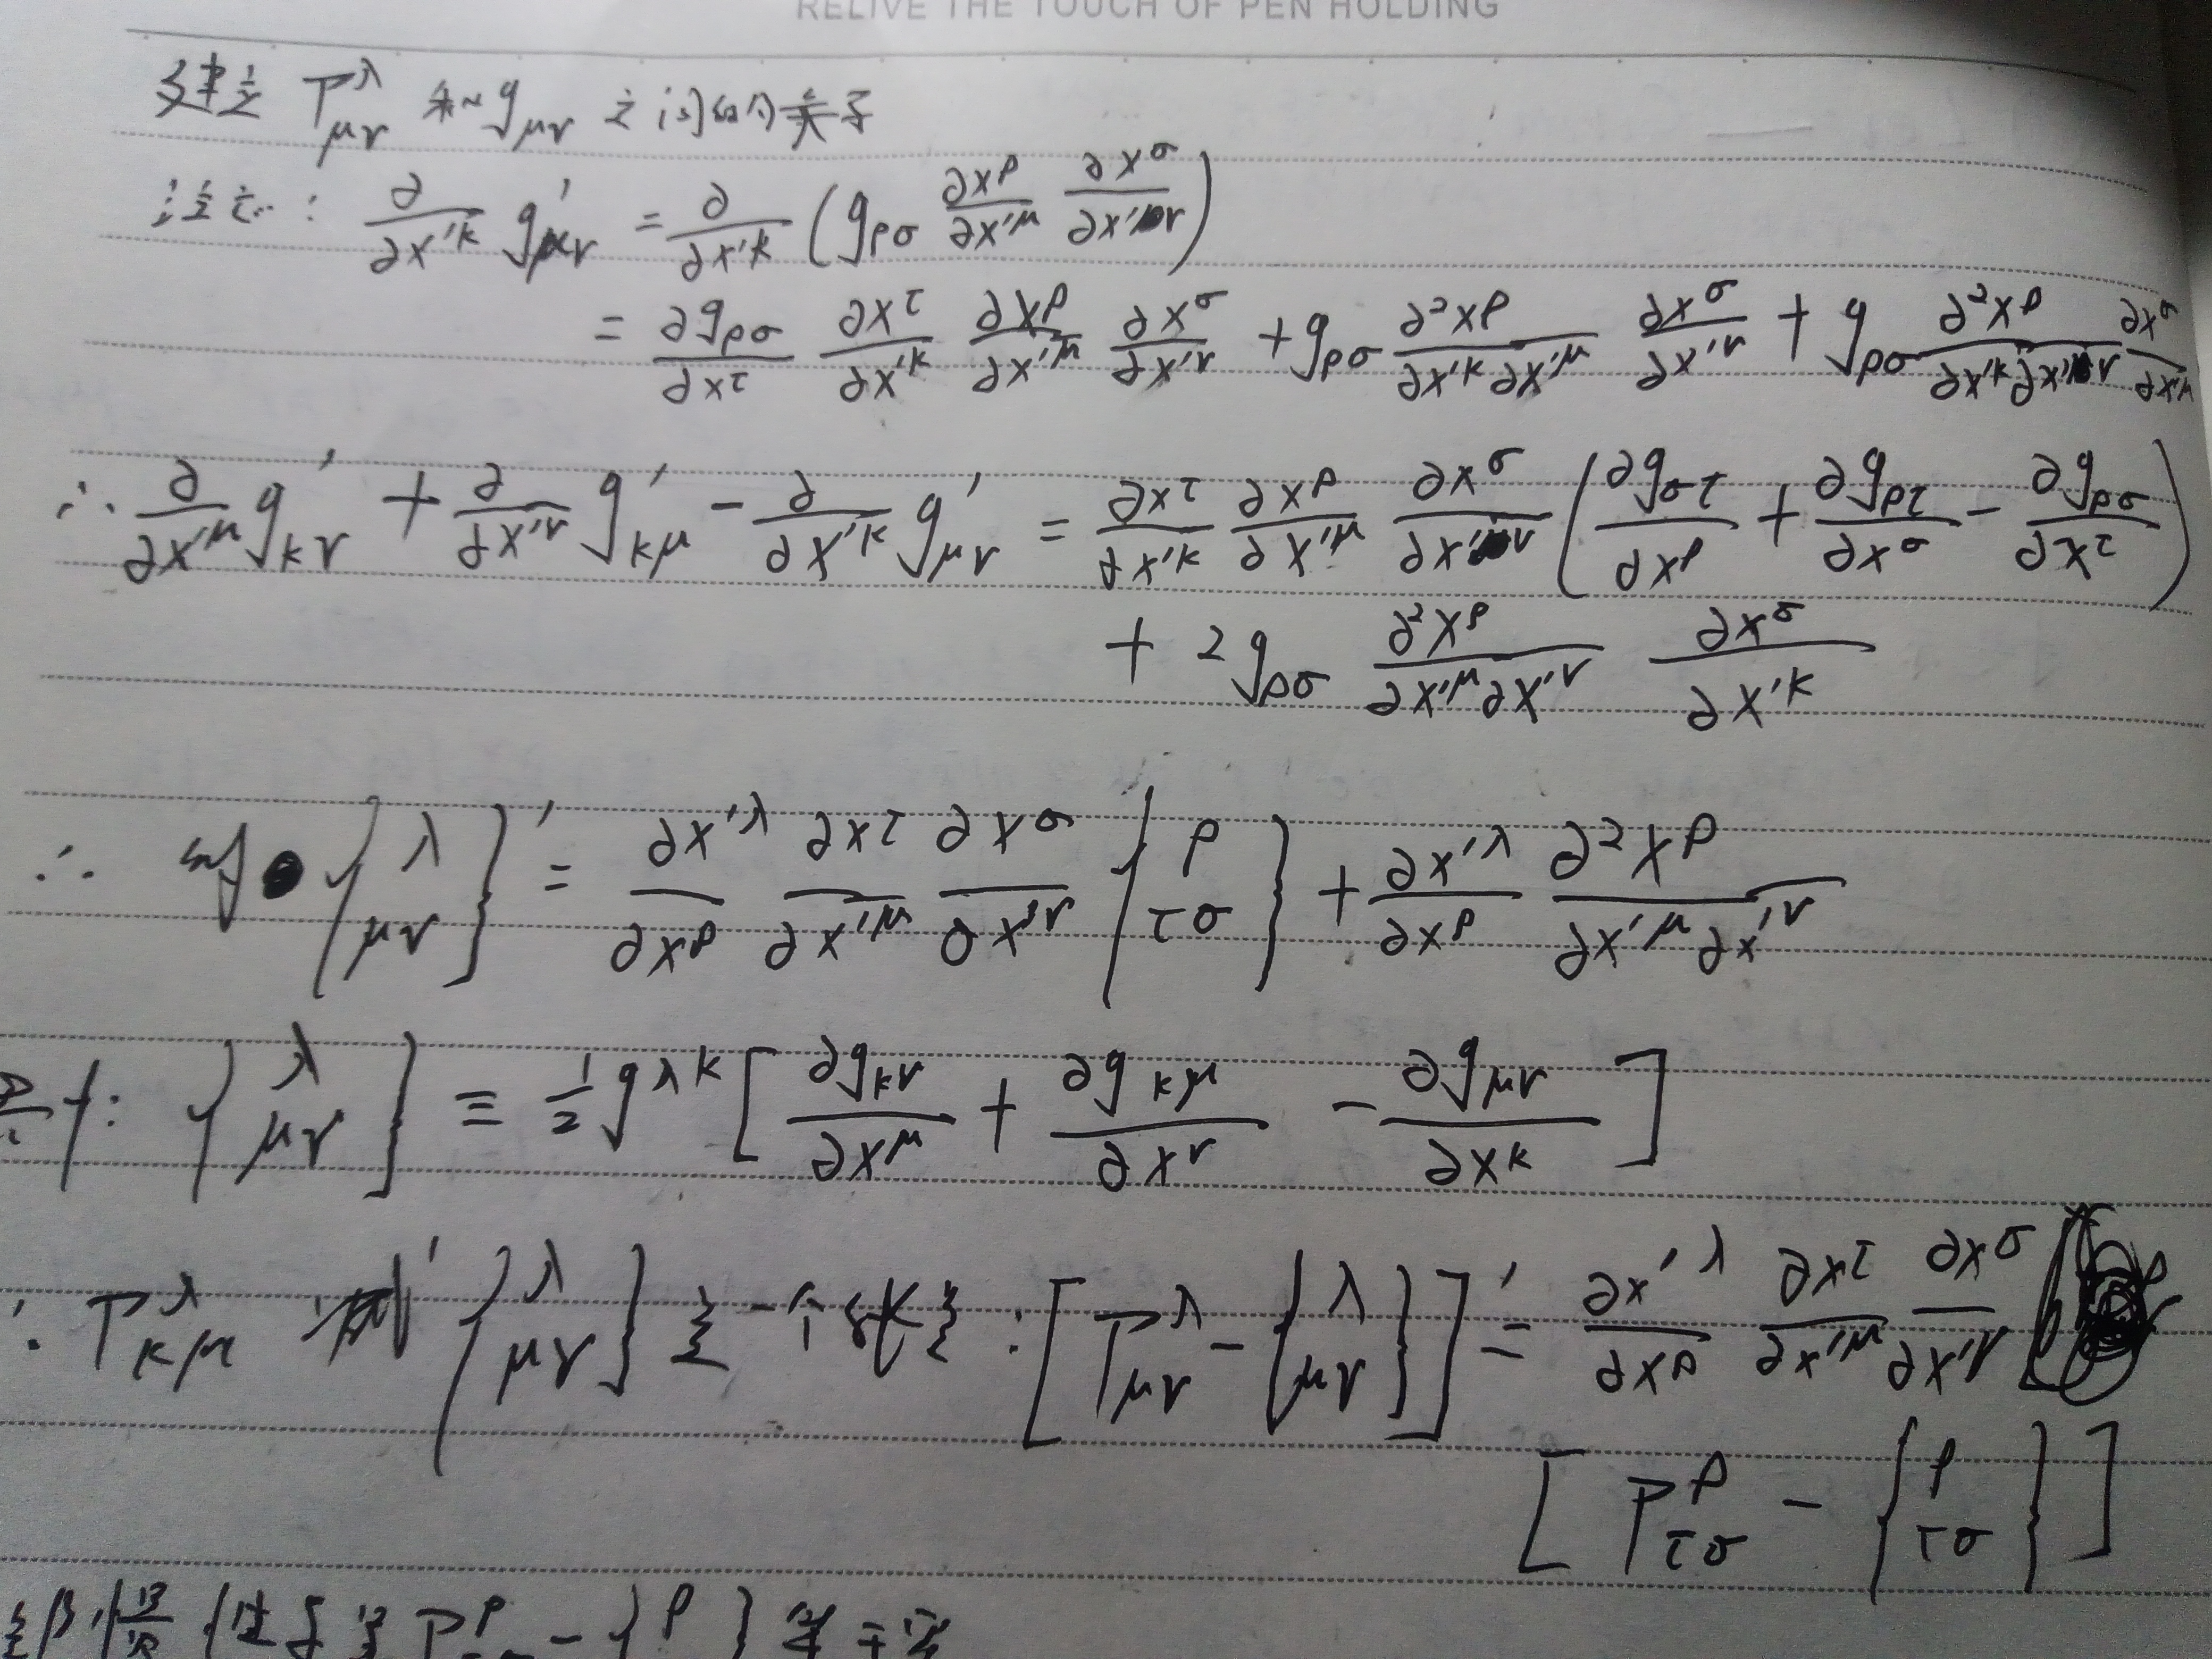 RELIVE THE TOUCH OF PEN HOLDING
建立 Γ^λ_{μν} 和 g_{μν} 之间的关系
注意: ∂/∂x'^κ g'_{μν} = ∂/∂x'^κ (g_{ρσ} ∂x^ρ/∂x'^μ ∂x^σ/∂x'^ν)
= ∂g_{ρσ}/∂x^τ ∂x^τ/∂x'^κ ∂x^ρ/∂x'^μ ∂x^σ/∂x'^ν + g_{ρσ} ∂²x^ρ/∂x'^κ∂x'^μ ∂x^σ/∂x'^ν + g_{ρσ} ∂²x^ρ/∂x'^κ∂x'^ν ∂x^σ/∂x'^μ
∴ ∂/∂x'^μ g'_{κν} + ∂/∂x'^ν g'_{κμ} - ∂/∂x'^κ g'_{μν} = ∂x^τ/∂x'^κ ∂x^ρ/∂x'^μ ∂x^σ/∂x'^ν (∂g_{στ}/∂x^ρ + ∂g_{ρτ}/∂x^σ - ∂g_{ρσ}/∂x^τ)
+ 2g_{ρσ} ∂²x^ρ/∂x'^μ∂x'^ν ∂x^σ/∂x'^κ
∴ {λ μν}' = ∂x'^λ/∂x^ρ ∂x^τ/∂x'^μ ∂x^σ/∂x'^ν {ρ τσ} + ∂x'^λ/∂x^ρ ∂²x^ρ/∂x'^μ∂x'^ν
: {λ μν} ≡ ½ g^{λκ} [∂g_{κν}/∂x^μ + ∂g_{κμ}/∂x^ν - ∂g_{μν}/∂x^κ]
∴ Γ^λ_{κμ} {λ μν} 是一个张量: [Γ^λ_{μν} - {λ μν}]' = ∂x'^λ/∂x^ρ ∂x^τ/∂x'^μ ∂x^σ/∂x'^ν
[Γ^ρ_{τσ} - {ρ τσ}]